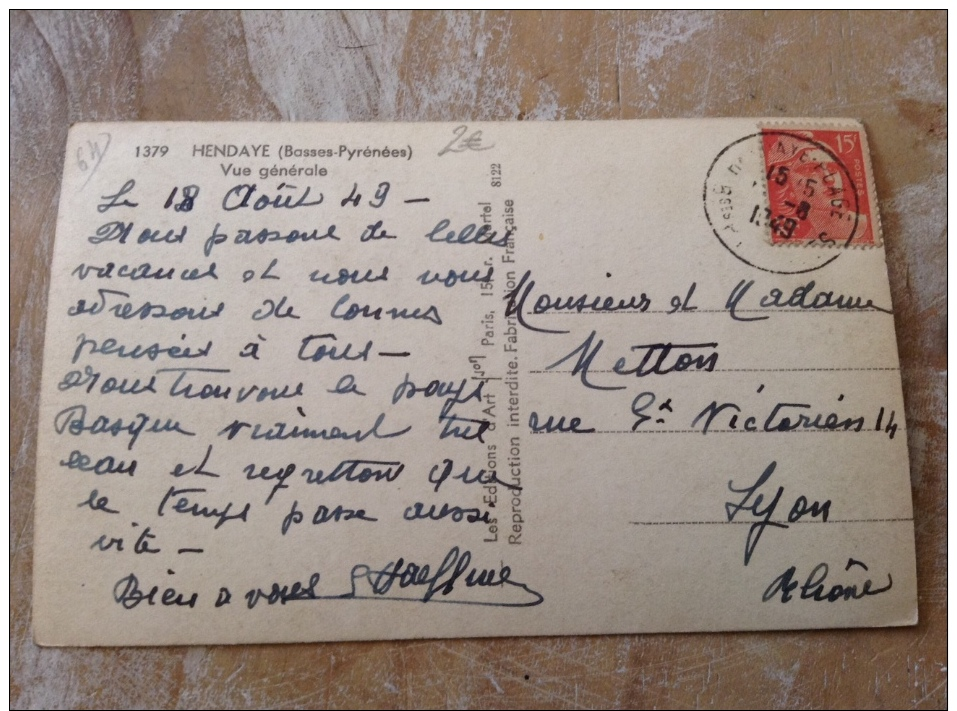 64
1379 HENDAYE (Basses-Pyrénées)
Vue générale
2€
Le 18 Août 49 -
Nous passons de belles
vacances et nous vous
adressons de bonnes
pensées à tous -
Nous trouvons le pays
Basque vraiment très
beau et regrettons que
le temps passe aussi
vite -
Bien a vous
8122
Les Editions d'Art "Yon" Paris, 15, r. Martel
Reproduction interdite. Fabrication Française
15F
POSTES
15
1949
Monsieur et Madame
Metton
rue St Victorien 14
Lyon
Rhône